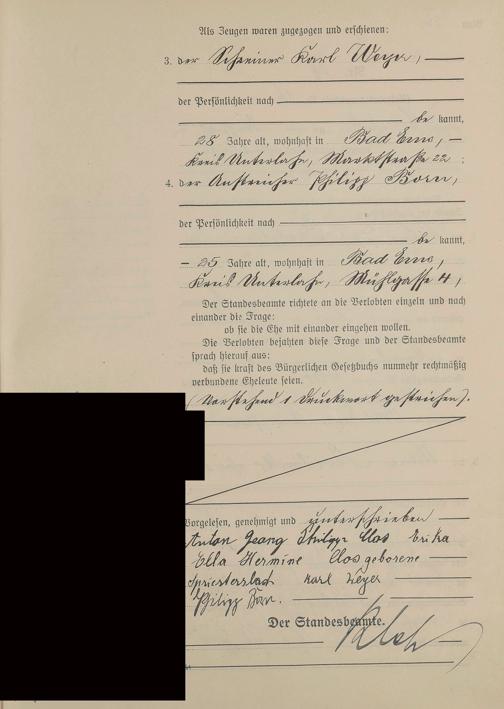 Als Zeugen waren zugezogen und erschienen:
3. der Schreiner Karl Weyer,
der Persönlichkeit nach
be kannt,
28 Jahre alt, wohnhaft in Bad Ems,
Kreis Unterlahn, Marktstraße 22;
4. der Anstreicher Philipp Born,
der Persönlichkeit nach
be kannt,
25 Jahre alt, wohnhaft in Bad Ems,
Kreis Unterlahn, Mühlgasse 4,
Der Standesbeamte richtete an die Verlobten einzeln und nach
einander die Frage:
ob sie die Ehe mit einander eingehen wollen.
Die Verlobten bejahten diese Frage und der Standesbeamte
sprach hierauf aus:
daß sie kraft des Bürgerlichen Gesetzbuchs nunmehr rechtmäßig
verbundene Eheleute seien.
(Vorstehend 1 Druckwort gestrichen).
Vorgelesen, genehmigt und unterschrieben
Anton Georg Philipp Clos Erika
Ella Hermine Clos geborene
Spriestersbach Karl Weyer
Philipp Born.
Der Standesbeamte.